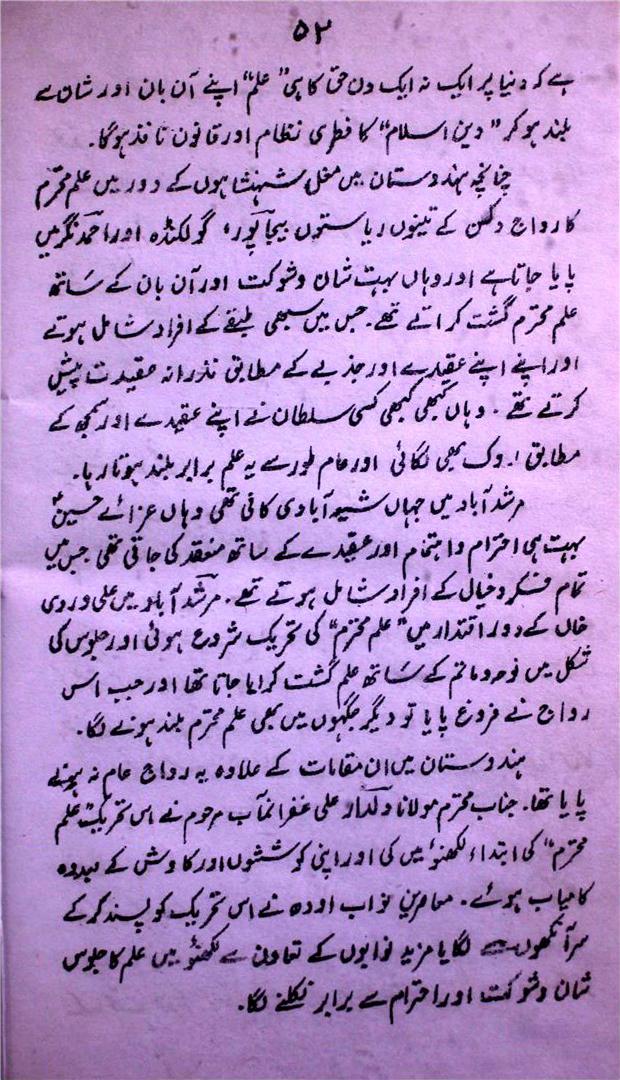 ۵۲
ہے کہ دنیا پر ایک نہ ایک دن حق کا ہی "علم" اپنے آن بان اور شان سے
بلند ہو کر "دین اسلام" کا فطری نظام اور قانون نافذ ہوگا۔
چنانچہ ہندوستان میں مغل شہنشاہوں کے دور میں علم محرّم
کا رواج دکھن کے تینوں ریاستوں بیجاپور، گولکنڈہ اور احمد نگر میں
پایا جاتا ہے اور وہاں بہت شان وشوکت اور آن بان کے سَاتھ
علم محرّم گشت کراتے تھے۔ جس میں سبھی طبقے کے افراد شامل ہوتے
اور اپنے اپنے عقیدے اور جذبے کے مطابق نذرانہ عقیدت پیش
کرتے تھے۔ وہاں کبھی کبھی کسی سلطان نے اپنے عقیدے اور سمجھ کے
مطابق روک بھی لگائی اور عام طور سے یہ علم برابر بلند ہوتا رہا۔
مرشدآباد میں جہاں شیعہ آبادی کافی تھی وہاں عزائے حسینؑ
بہت ہی احترام و اہتمام اور عقیدے کے ساتھ منعقد کی جاتی تھی جس میں
تمام فکر و خیال کے افراد شامل ہوتے تھے۔ مرشدآباد میں علی وردی
خاں کے دور اقتدار میں "علم محرّم" کی تحریک شروع ہوئی اور جلوس کی
شکل میں نوحہ و ماتم کے سَاتھ علم گشت کرایا جاتا تھا اور جب اس
رواج نے فروغ پایا تو دیگر جگہوں میں بھی علم محرّم بلند ہونے لگا۔
ہندوستان میں ان مقامات کے علاوہ یہ رواج عام نہ ہونے
پایا تھا۔ جناب محترم مولانا دلدار علی غفرانمآب مرحوم نے اس تحریک "علم
محرّم" کی ابتداء لکھنؤ میں کی اور اپنی کوششوں اور کاوش کے بعد وہ
کامیاب ہوئے۔ معاصرین نواب اودھ نے اس تحریک کو پسند کر کے
سر آنکھوں سے لگایا مزید نوابوں کے تعاون سے لکھنؤ میں علم کا جلوس
شان وشوکت اور احترام سے برابر نکلنے لگا۔